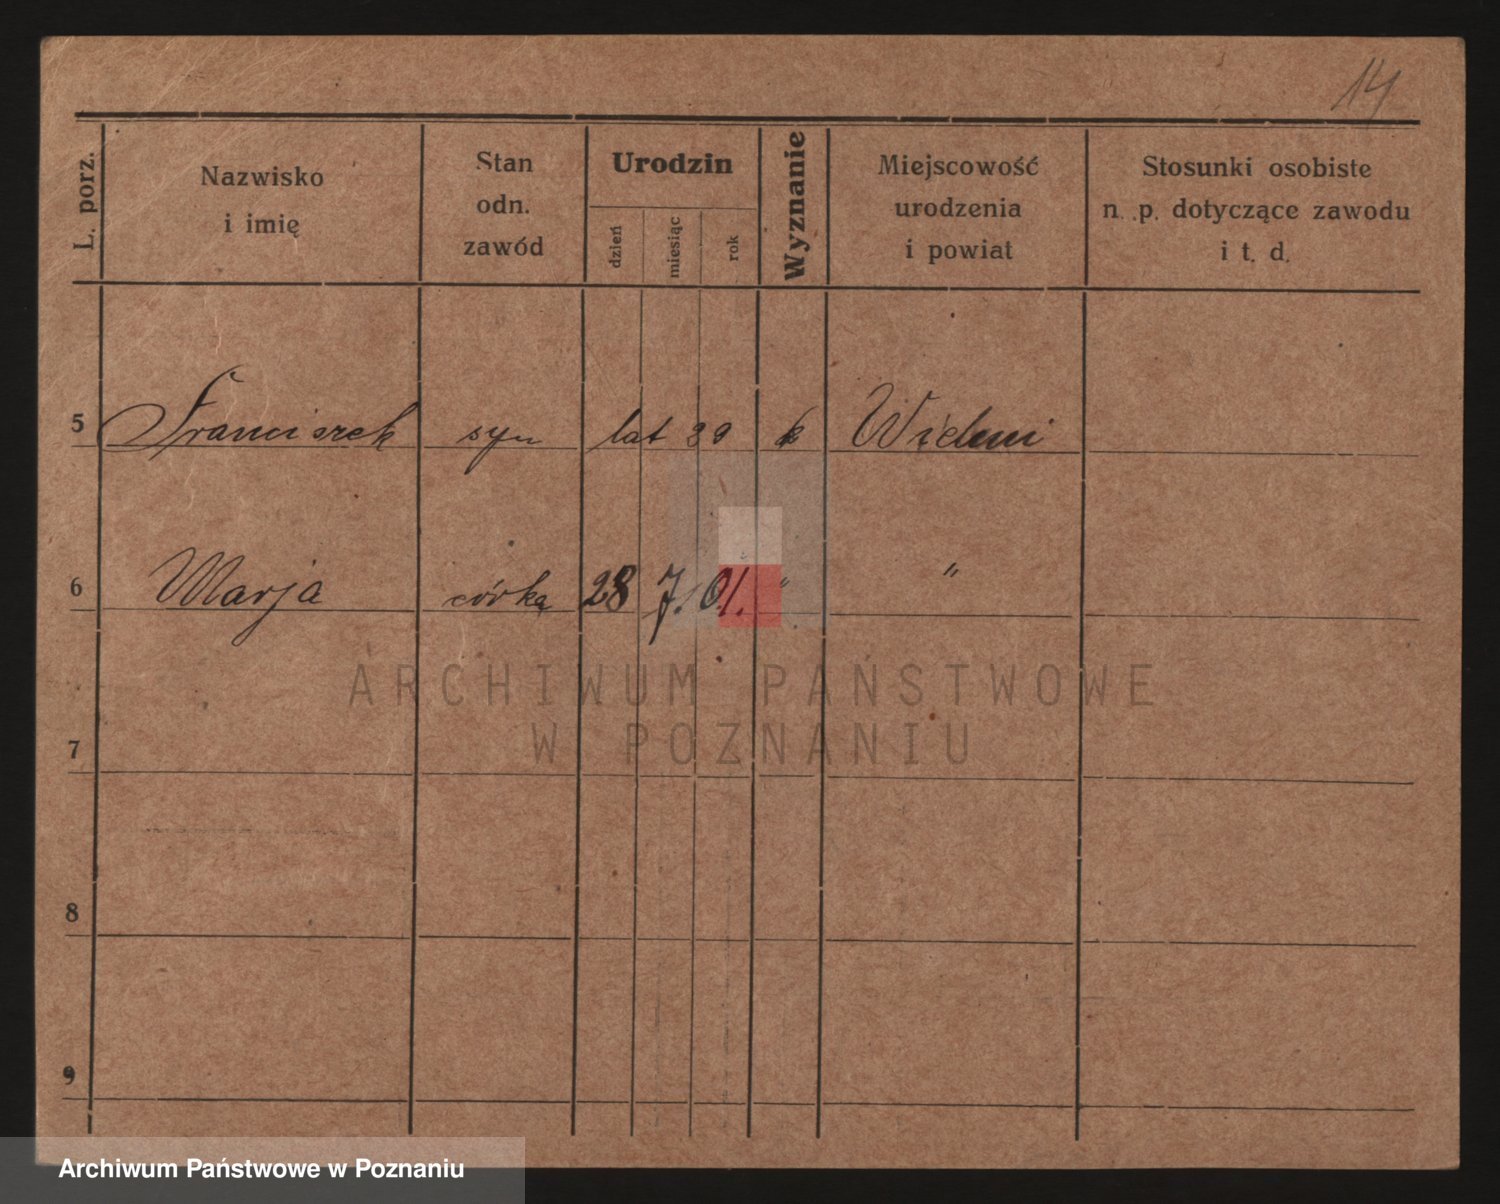 14
L. porz.
Nazwisko
i imię
Stan
odn.
zawód
Urodzin
dzień
miesiąc
rok
Wyznanie
Miejscowość
urodzenia
i powiat
Stosunki osobiste
n. p. dotyczące zawodu
i t. d.
5 Franciszek syn lat 29 k
6 Marja córka 28 7. 01. " "
ARCHIWUM PAŃSTWOWE
W POZNANIU
7
8
9
Archiwum Państwowe w Poznaniu